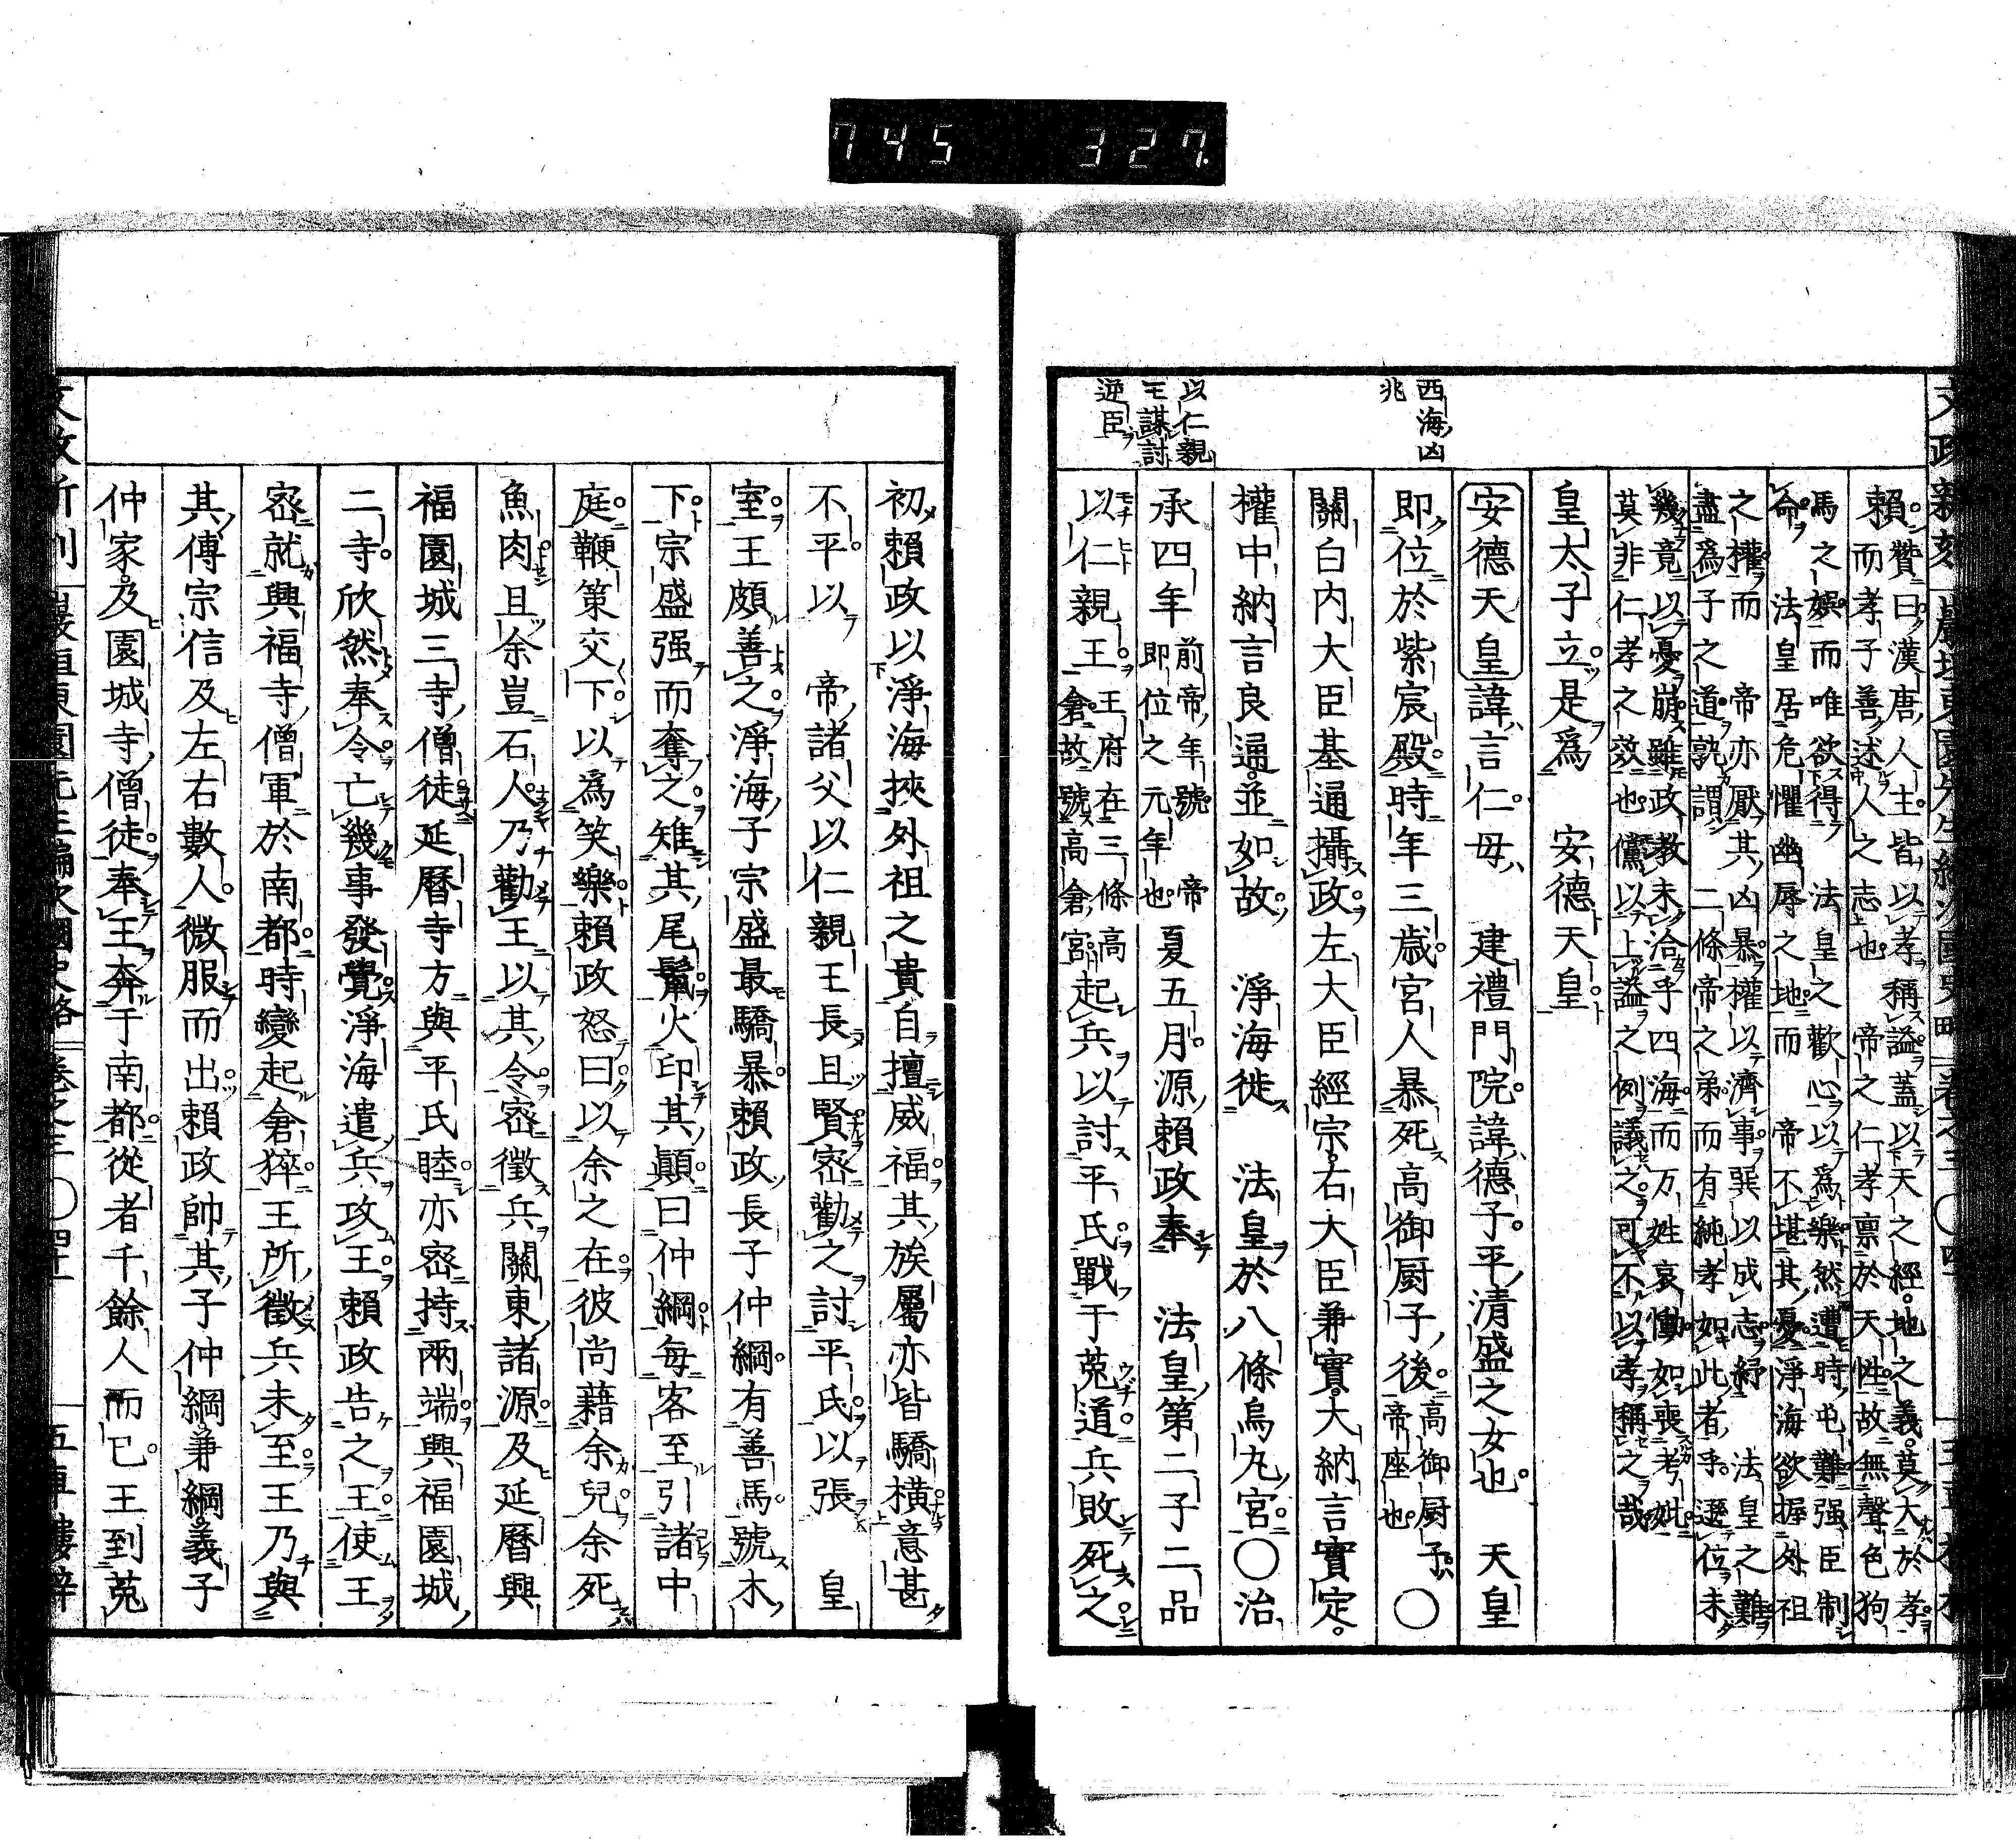 745 327.
西海凶
兆
以仁親
王謀討
逆臣
賴贊曰漢唐人主皆以孝稱謚蓋以天之經地之義莫大於孝
而孝子善述人之志也 帝之仁孝禀於天性故無聲色狗
馬之娯而唯欲得 法皇之歡心以爲樂然遭時屯難强臣制
命 法皇居危懼幽辱之地而 帝不堪其憂淨海欲握外祖
之權而 帝亦厭其凶暴權以濟事巽以成志紓 法皇之難
盡爲子之道孰謂 二條帝之弟而有純孝如此者乎遜位未
幾竟以憂崩雖政教未洽乎四海而万姓哀慟如喪考妣
莫非仁孝之效也儻以上謚之例議之可不以孝稱之哉
皇太子立是爲 安德天皇
安德天皇諱言仁母 建禮門院諱德子平清盛之女也 天皇
即位於紫宸殿時年三歳宮人暴死高御厨子後高御厨子帝座也〇
關白内大臣基通攝政左大臣經宗右大臣兼實大納言實定
權中納言良通並如故 淨海徙 法皇於八條烏丸宮〇治
承四年前帝年號帝即位之元年也夏五月源賴政奉 法皇第二子二品
以仁親王王府在三條高倉故號高倉宮起兵以討平氏戰于菟道兵敗死之
初賴政以淨海挾外祖之貴自擅威福其族屬亦皆驕橫意甚
不平以 帝諸父以仁親王長且賢密勸之討平氏以張 皇
室王頗善之淨海子宗盛最驕暴賴政長子仲綱有善馬號木
下宗盛强而奪之雉其尾鬣火印其顚曰仲綱毎客至引諸中
庭鞭策交下以爲笑樂賴政怒曰以余之在彼尚藉余兒余死
魚肉且余豈石人乃勸王以其令密徵兵關東諸源及延曆興
福園城三寺僧徒延曆寺方與平氏睦亦密持兩端興福園城
二寺欣然奉令亡幾事發覺淨海遣兵攻王賴政告之王使王
密就興福寺僧軍於南都時變起倉猝王所徵兵未至王乃與
其傅宗信及左右數人微服而出賴政帥其子仲綱兼綱義子
仲家及園城寺僧徒奉王奔于南都從者千餘人而已王到菟